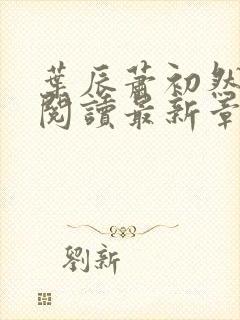 葉辰蕭初然
閱讀最新章
劉新